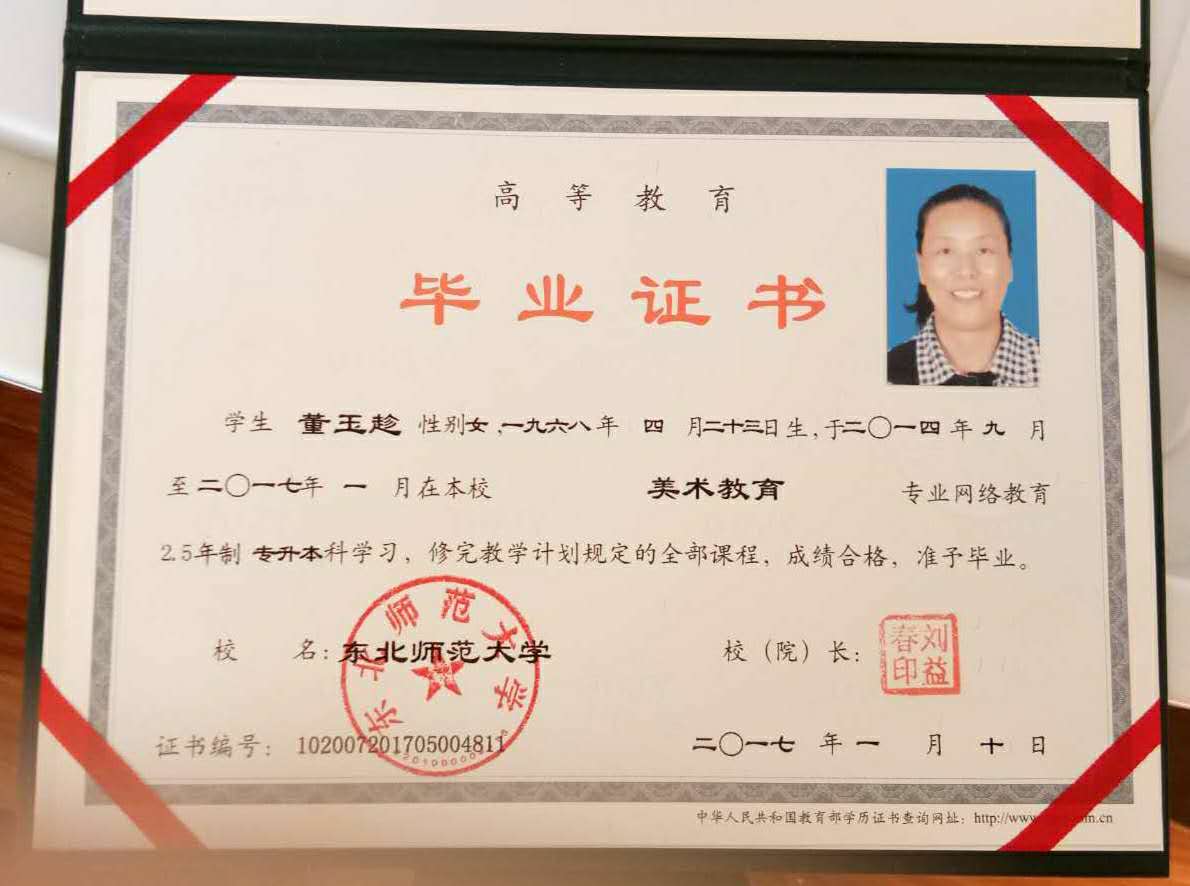 高等教育
毕业证书
学生 董玉趁 性别女,一九六八年 四 月二十三日生,于二〇一四年九 月
至二〇一七年 一 月在本校 美术教育 专业网络教育
2.5年制 专升本科学习,修完教学计划规定的全部课程,成绩合格,准予毕业。
校 名:东北师范大学 校(院)长:
东北师范大学
刘益春印
证书编号: 102007201705004811 二〇一七 年 一 月 十 日
中华人民共和国教育部学历证书查询网址:http://www. .cn